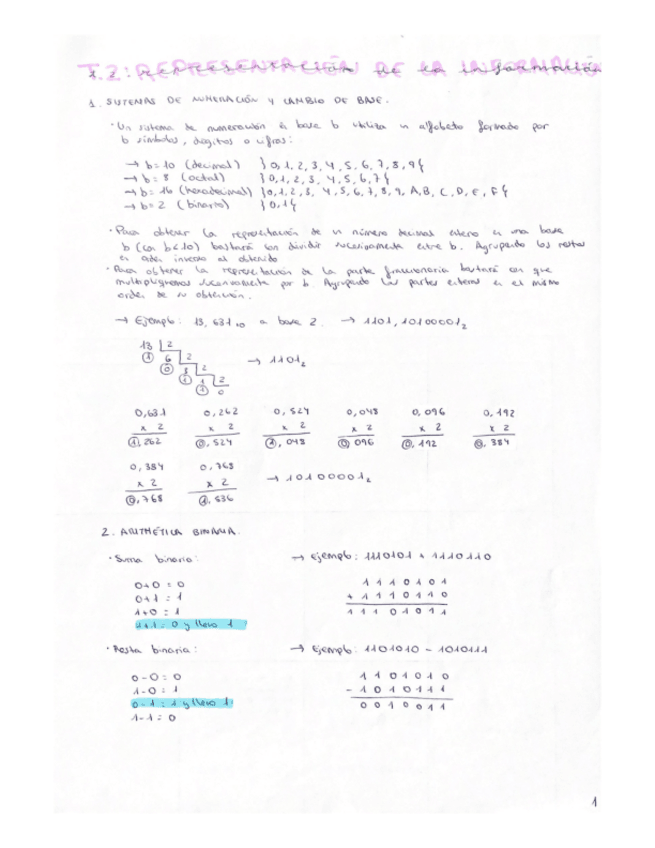 T.2: REPRESENTACIÓN DE LA INFORMACIÓN
1. SISTEMAS DE NUMERACIÓN Y CAMBIO DE BASE.
· Un sistema de numeración en base b utiliza un alfabeto formado por
b símbolos, dígitos o cifras:
→ b=10 (decimal) }0,1,2,3,4,5,6,7,8,9{
→ b=8 (octal) }0,1,2,3,4,5,6,7{
→ b=16 (hexadecimal) }0,1,2,3,4,5,6,7,8,9,A,B,C,D,E,F{
→ b=2 (binario) }0,1{
· Para obtener la representación de un número decimal entero en una base
b (con b<10) bastará con dividir sucesivamente entre b. Agrupando los restos
en orden inverso al obtenido
· Para obtener la representación de la parte fraccionaria bastará con que
multipliquemos sucesivamente por b. Agrupando las partes enteras en el mismo
orden de su obtención.
→ Ejemplo: 13,631₁₀ a base 2. → 1101,10100001₂
13 2
1 6 2
0 3 2
1 1 2
1 0
→ 1101₂
0,631 0,262 0,524 0,048 0,096 0,192
x 2 x 2 x 2 x 2 x 2 x 2
1,262 0,524 1,048 0,096 0,192 0,384
0,384 0,768
x 2 x 2
0,768 1,536
→ 10100001₂
2. ARITMÉTICA BINARIA.
· Suma binaria: → Ejemplo: 1110101 + 1110110
0+0=0
0+1=1
1+0=1
1+1=0 y llevo 1
1110101
+ 1110110
11101011
· Resta binaria: → Ejemplo: 1101010 - 1010111
0-0=0
1-0=1
0-1=1 y llevo 1
1-1=0
1101010
- 1010111
0010011
1